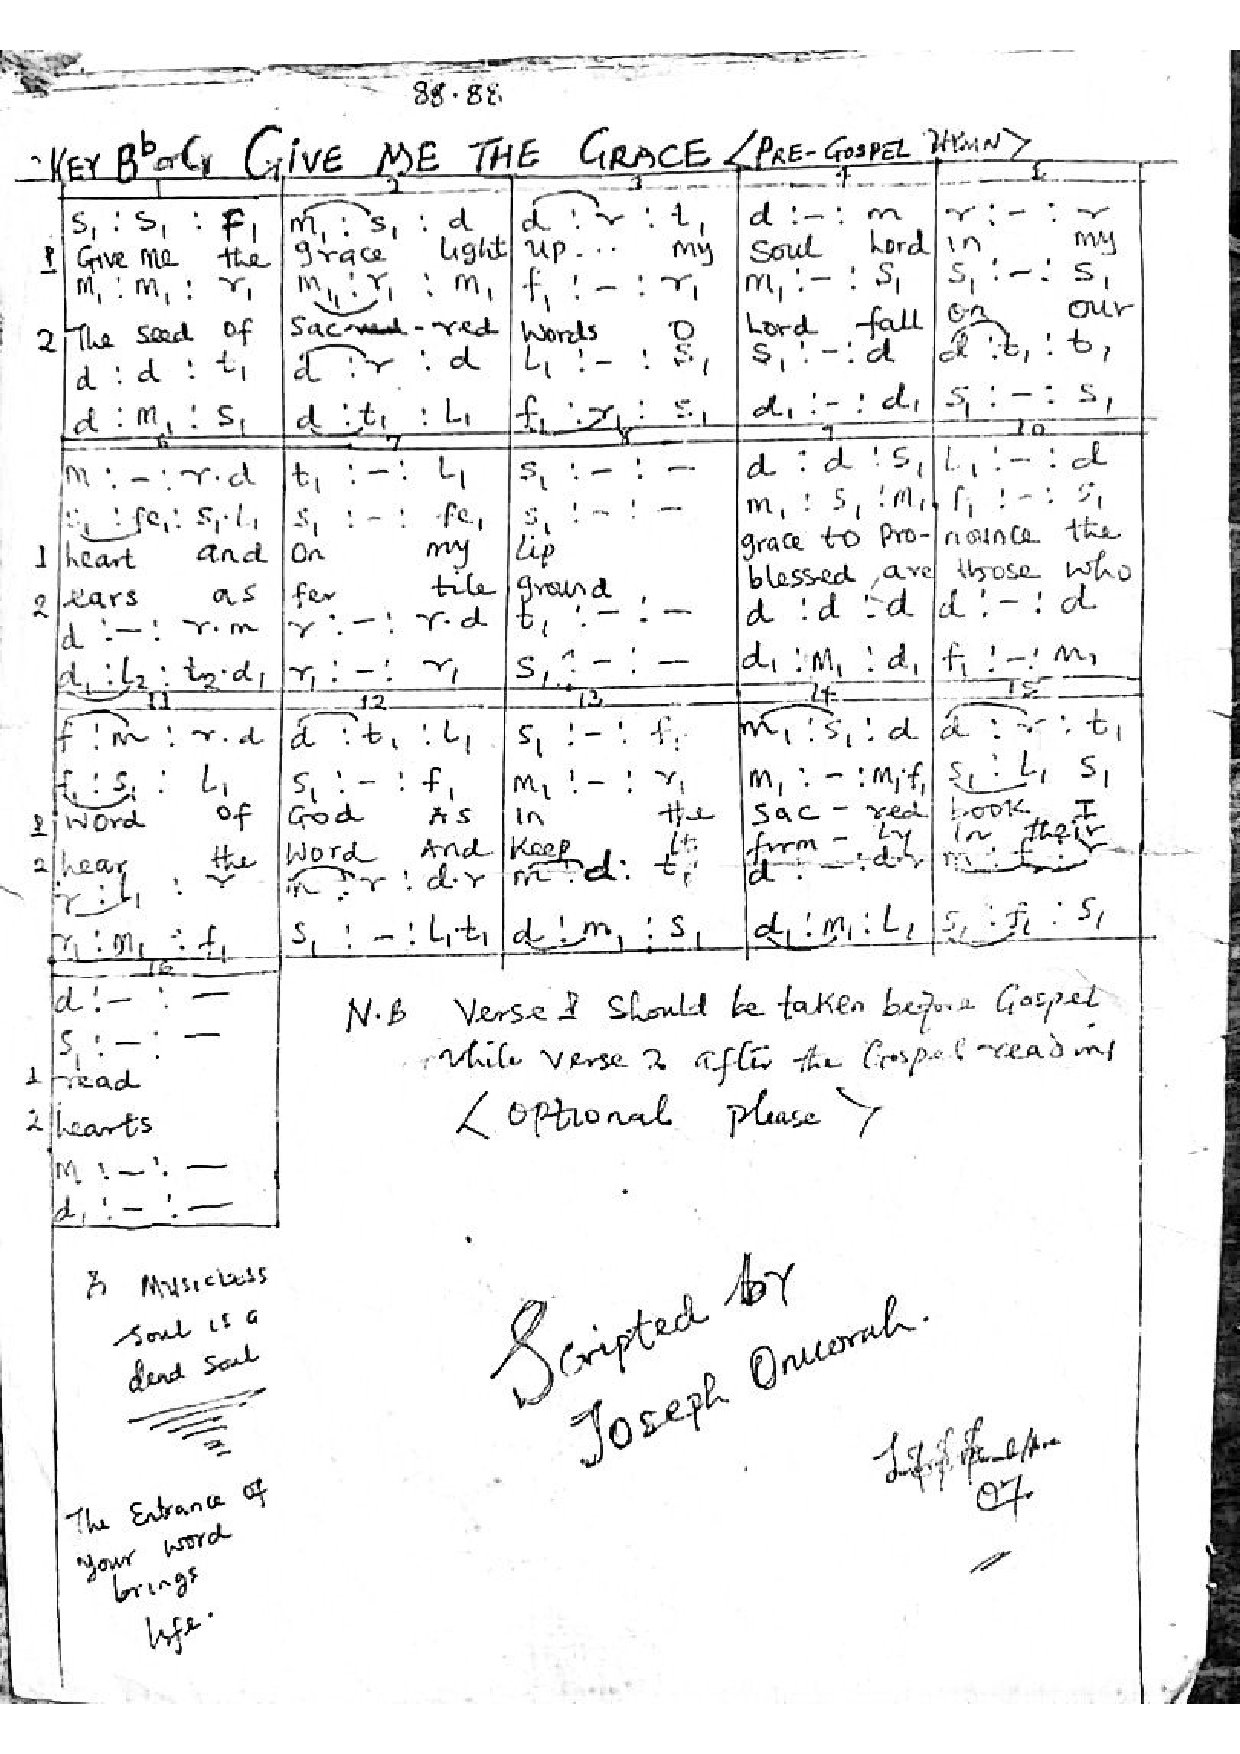 88.88.
KEY Bb or G GIVE ME THE GRACE <PRE-GOSPEL HYMN>
1 2 3 4 5
s₁ : s₁ : F₁ | m₁ : s₁ : d | d : r : t₁ | d : - : m | r : - : r
1 Give me the | grace light | up... my | soul Lord | in my
m₁ : m₁ : r₁ | m₁ : r₁ : m₁ | f₁ : - : r₁ | m₁ : - : s₁ | s₁ : - : s₁
2 The seed of | sac-red | words O | Lord fall | on our
d : d : t₁ | d : r : d | L₁ : - : s₁ | s₁ : - : d | d : t₁ : t₁
d : m₁ : s₁ | d : t₁ : L₁ | f₁ : r₁ : s₁ | d₁ : - : d₁ | s₁ : - : s₁
6 7 8 9 10
m : - : r.d | t₁ : - : L₁ | s₁ : - : - | d : d : s₁ | L₁ : - : d
s₁ : fe₁ : s₁.L₁ | s₁ : - : fe₁ | s₁ : - : - | m₁ : s₁ : m₁ | f₁ : - : s₁
1 heart and | on my | lip | grace to pro- | nounce the
2 ears as | fer tile | ground | blessed, are | those who
d : - : r.m | r : - : r.d | t₁ : - : - | d : d : d | d : - : d
d₁ : L₂ : t₂.d₁ | r₁ : - : r₁ | s₁ : - : - | d₁ : m₁ : d₁ | f₁ : - : m₁
11 12 13 14 15
f : m : r.d | d : t₁ : L₁ | s₁ : - : f₁ | m₁ : s₁ : d | d : r : t₁
f₁ : s₁ : L₁ | s₁ : - : f₁ | m₁ : - : r₁ | m₁ : - : m₁.f₁ | s₁ : L₁ s₁
1 word of | God As | in the | sac-red | book I
2 hear the | word And | keep it | firm-ly | in their
r : L₁ : r | m : r : d.r | m : d : t₁ | d : - : d.r | m : f : r
r₁ : m₁ : f₁ | s₁ : - : L₁.t₁ | d : m₁ : s₁ | d₁ : m₁ : L₁ | s₁ : f₁ : s₁
16
d : - : -
s₁ : - : -
1 read
2 hearts
m : - : -
d₁ : - : -
N.B Verse 1 should be taken before Gospel
while verse 2 after the Gospel reading
<Optional please>
A Musicless
soul is a
dead soul
Scripted by
Joseph Onuorah.
07.
The Entrance of
your word
brings
life.